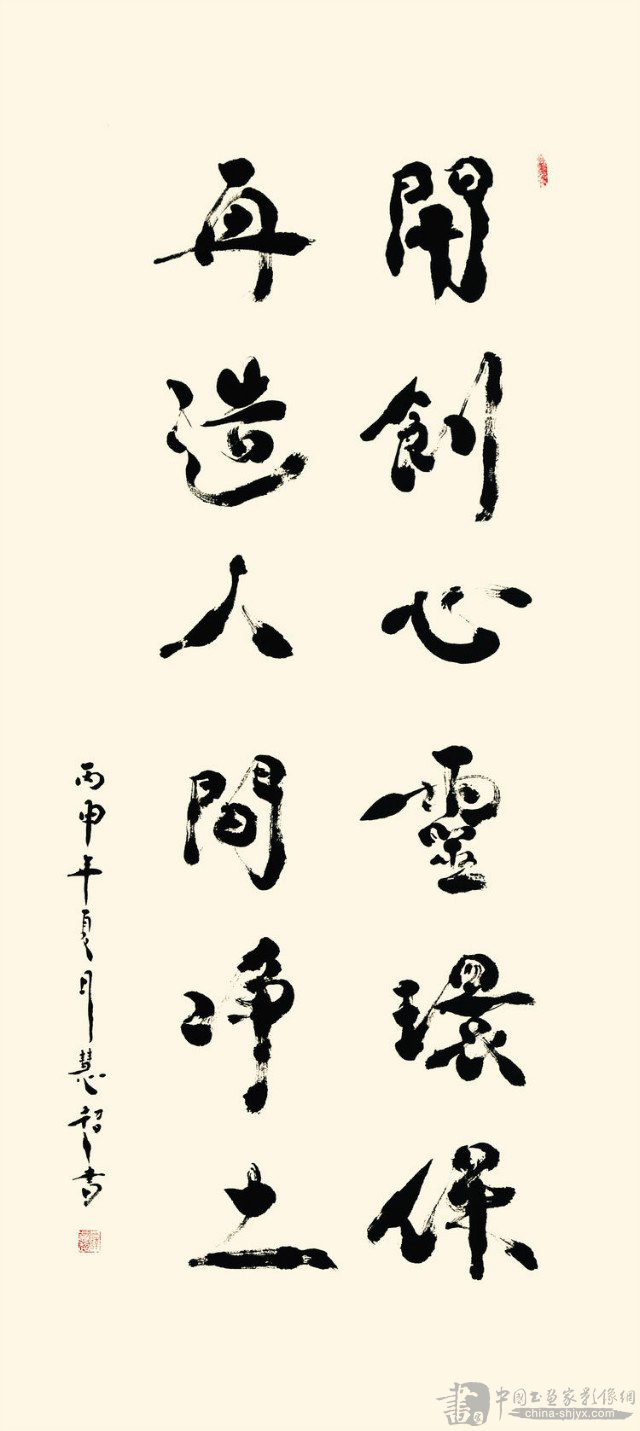 開創心靈環保
再造人間净土
丙申年夏月慧超書
書 中國书画家影像網
china-shjyx.com